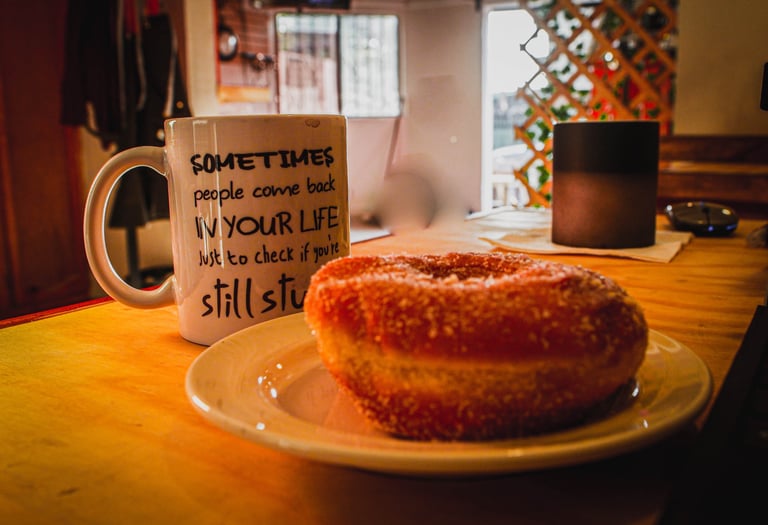 SOMETIMES
people come back
IN YOUR LIFE
Just to check if you're
still